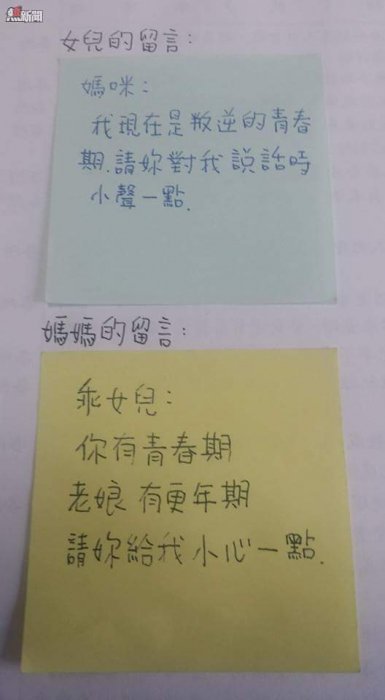 焦新聞
女兒的留言：
媽咪：
我現在是叛逆的青春
期.請妳對我說話時
小聲一點.
媽媽的留言：
乖女兒：
你有青春期
老娘有更年期
請妳給我小心一點.